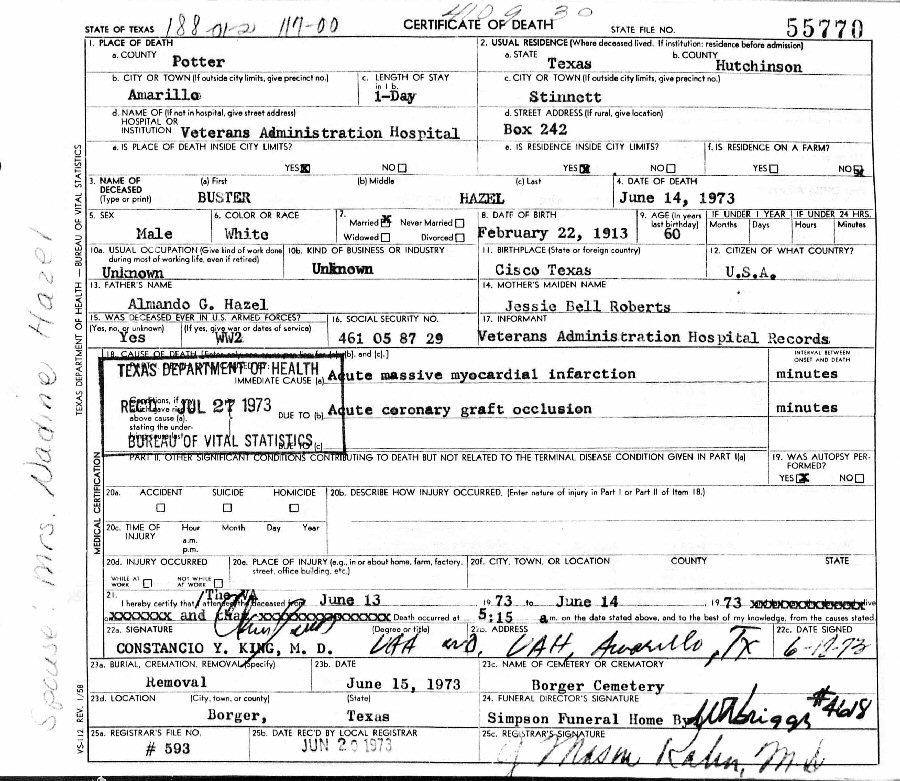 STATE OF TEXAS 188 01-2 117-00 4109 30 CERTIFICATE OF DEATH STATE FILE NO. 55770
1. PLACE OF DEATH 2. USUAL RESIDENCE (Where deceased lived. If institution: residence before admission)
a. COUNTY Potter a. STATE Texas b. COUNTY Hutchinson
b. CITY OR TOWN (If outside city limits, give precinct no.) Amarillo c. LENGTH OF STAY in 1 b. 1-Day c. CITY OR TOWN (If outside city limits, give precinct no.) Stinnett
d. NAME OF (If not in hospital, give street address) HOSPITAL OR INSTITUTION Veterans Administration Hospital d. STREET ADDRESS (If rural, give location) Box 242
e. IS PLACE OF DEATH INSIDE CITY LIMITS? e. IS RESIDENCE INSIDE CITY LIMITS? f. IS RESIDENCE ON A FARM?
YES NO YES NO YES NO
3. NAME OF DECEASED (Type or print) (a) First BUSTER (b) Middle (c) Last HAZEL 4. DATE OF DEATH June 14, 1973
5. SEX Male 6. COLOR OR RACE White 7. Married Never Married Widowed Divorced 8. DATE OF BIRTH February 22, 1913 9. AGE (In years last birthday) 60 IF UNDER 1 YEAR Months Days IF UNDER 24 HRS. Hours Minutes
10a. USUAL OCCUPATION (Give kind of work done during most of working life, even if retired) Unknown 10b. KIND OF BUSINESS OR INDUSTRY Unknown 11. BIRTHPLACE (State or foreign country) Cisco Texas 12. CITIZEN OF WHAT COUNTRY? U.S.A.
13. FATHER'S NAME Almando G. Hazel 14. MOTHER'S MAIDEN NAME Jessie Bell Roberts
15. WAS DECEASED EVER IN U.S. ARMED FORCES? (Yes, no, or unknown) Yes (If yes, give war or dates of service) WW2 16. SOCIAL SECURITY NO. 461 05 87 29 17. INFORMANT Veterans Administration Hospital Records
18. CAUSE OF DEATH [Enter only one cause per line for (a), (b), and (c).] INTERVAL BETWEEN ONSET AND DEATH
TEXAS DEPARTMENT OF HEALTH
IMMEDIATE CAUSE (a) Acute massive myocardial infarction minutes
REC'D JUL 27 1973
Conditions, if any, which gave rise to above cause (a), stating the underlying cause last.
DUE TO (b) Acute coronary graft occlusion minutes
BUREAU OF VITAL STATISTICS
DUE TO (c)
PART II. OTHER SIGNIFICANT CONDITIONS CONTRIBUTING TO DEATH BUT NOT RELATED TO THE TERMINAL DISEASE CONDITION GIVEN IN PART I(a) 19. WAS AUTOPSY PERFORMED? YES NO
20a. ACCIDENT SUICIDE HOMICIDE 20b. DESCRIBE HOW INJURY OCCURRED. (Enter nature of injury in Part I or Part II of Item 18.)
20c. TIME OF INJURY Hour Month Day Year a.m. p.m.
20d. INJURY OCCURRED WHILE AT WORK NOT WHILE AT WORK 20e. PLACE OF INJURY (e.g., in or about home, farm, factory, street, office building, etc.) 20f. CITY, TOWN, OR LOCATION COUNTY STATE
21. I hereby certify that The VA attended the deceased from June 13 1973 to June 14 1973
Death occurred at 5:15 a.m. on the date stated above, and to the best of my knowledge, from the causes stated.
22a. SIGNATURE CONSTANCIO Y. KING, M. D. (Degree or title) 22b. ADDRESS VAH, Amarillo, Tx 22c. DATE SIGNED
23a. BURIAL, CREMATION, REMOVAL (Specify) Removal 23b. DATE June 15, 1973 23c. NAME OF CEMETERY OR CREMATORY Borger Cemetery
23d. LOCATION (City, town, or county) Borger, (State) Texas 24. FUNERAL DIRECTOR'S SIGNATURE Simpson Funeral Home By Briggs #4618
25a. REGISTRAR'S FILE NO. # 593 25b. DATE REC'D BY LOCAL REGISTRAR JUN 20 1973 25c. REGISTRAR'S SIGNATURE J Mason Kahn, M.D.
TEXAS DEPARTMENT OF HEALTH — BUREAU OF VITAL STATISTICS
MEDICAL CERTIFICATION
VS-112 REV. 1/58
Spouse: Mrs. Nadine Hazel